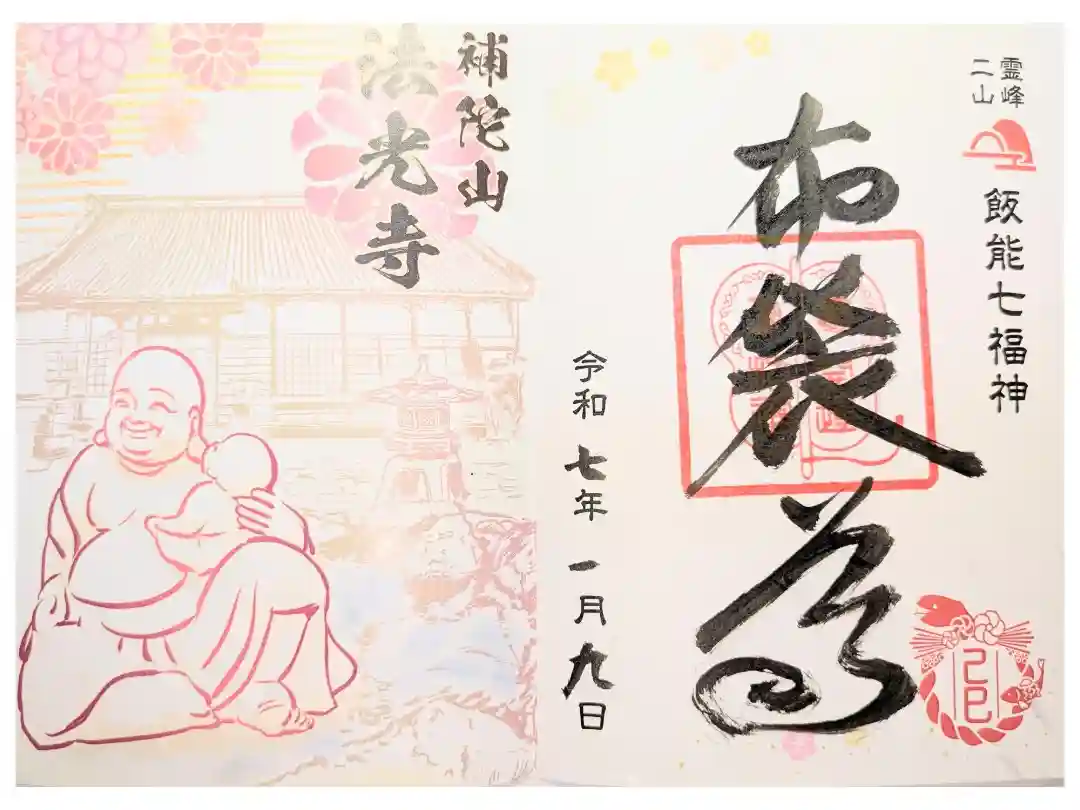 霊峰
二山
飯能七福神
布袋尊
令和七年一月九日
補陀山
法光寺
己巳